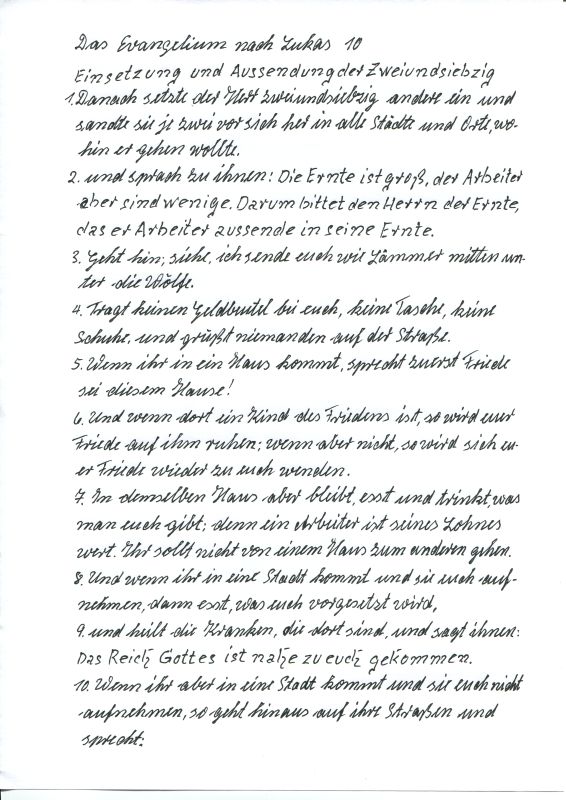 Das Evangelium nach Lukas 10
Einsetzung und Aussendung der Zweiundsiebzig
1. Danach setzte der Herr zweiundsiebzig andere ein und
sandte sie je zwei vor sich her in alle Städte und Orte, wo-
hin er gehen wollte.
2. und sprach zu ihnen: Die Ernte ist groß, der Arbeiter
aber sind wenige. Darum bittet den Herrn der Ernte,
das er Arbeiter aussende in seine Ernte.
3. Geht hin; siehe, ich sende euch wie Lämmer mitten un-
ter die Wölfe.
4. Tragt keinen Geldbeutel bei euch, keine Tasche, keine
Schuhe, und grüßt niemanden auf der Straße.
5. Wenn ihr in ein Haus kommt, sprecht zuerst Friede
sei diesem Hause!
6. Und wenn dort ein Kind des Friedens ist, so wird euer
Friede auf ihm ruhen; wenn aber nicht, so wird sich eu-
er Friede wieder zu euch wenden.
7. In demselben Haus aber bleibt, esst und trinkt, was
man euch gibt; denn ein Arbeiter ist seines Lohnes
wert. Ihr sollt nicht von einem Haus zum anderen gehen.
8. Und wenn ihr in eine Stadt kommt und sie euch auf-
nehmen, dann esst, was euch vorgesetzt wird,
9. und heilt die Kranken, die dort sind, und sagt ihnen:
Das Reich Gottes ist nahe zu euch gekommen.
10. Wenn ihr aber in eine Stadt kommt und sie euch nicht
aufnehmen, so geht hinaus auf ihre Straßen und
sprecht: